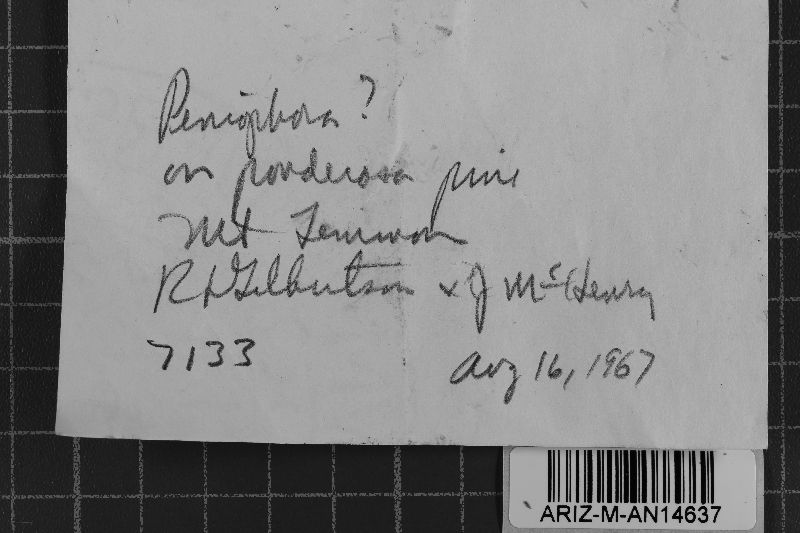 Peniophora?
on ponderosa pine
Mt Lemmon
R L Gilbertson & J McHenry
7133 Aug 16, 1967
ARIZ-M-AN14637